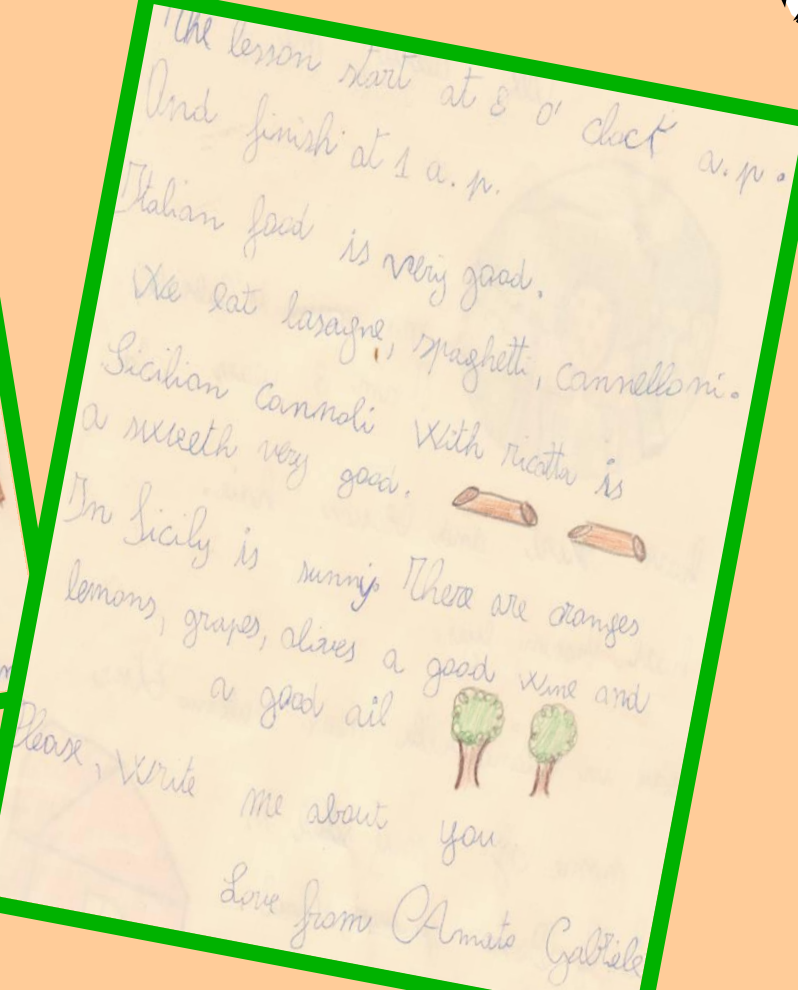 The lesson start at 8 o' clock a.p.
And finish at 1 a.p.
Italian food is very good.
We eat lasagne, spaghetti, cannelloni.
Sicilian cannoli with ricotta is
a sweeth very good.
In Sicily is sunny. There are oranges
lemons, grapes, olives a good wine and
a good oil
Please, write me about you
Love from Amato Gabriele